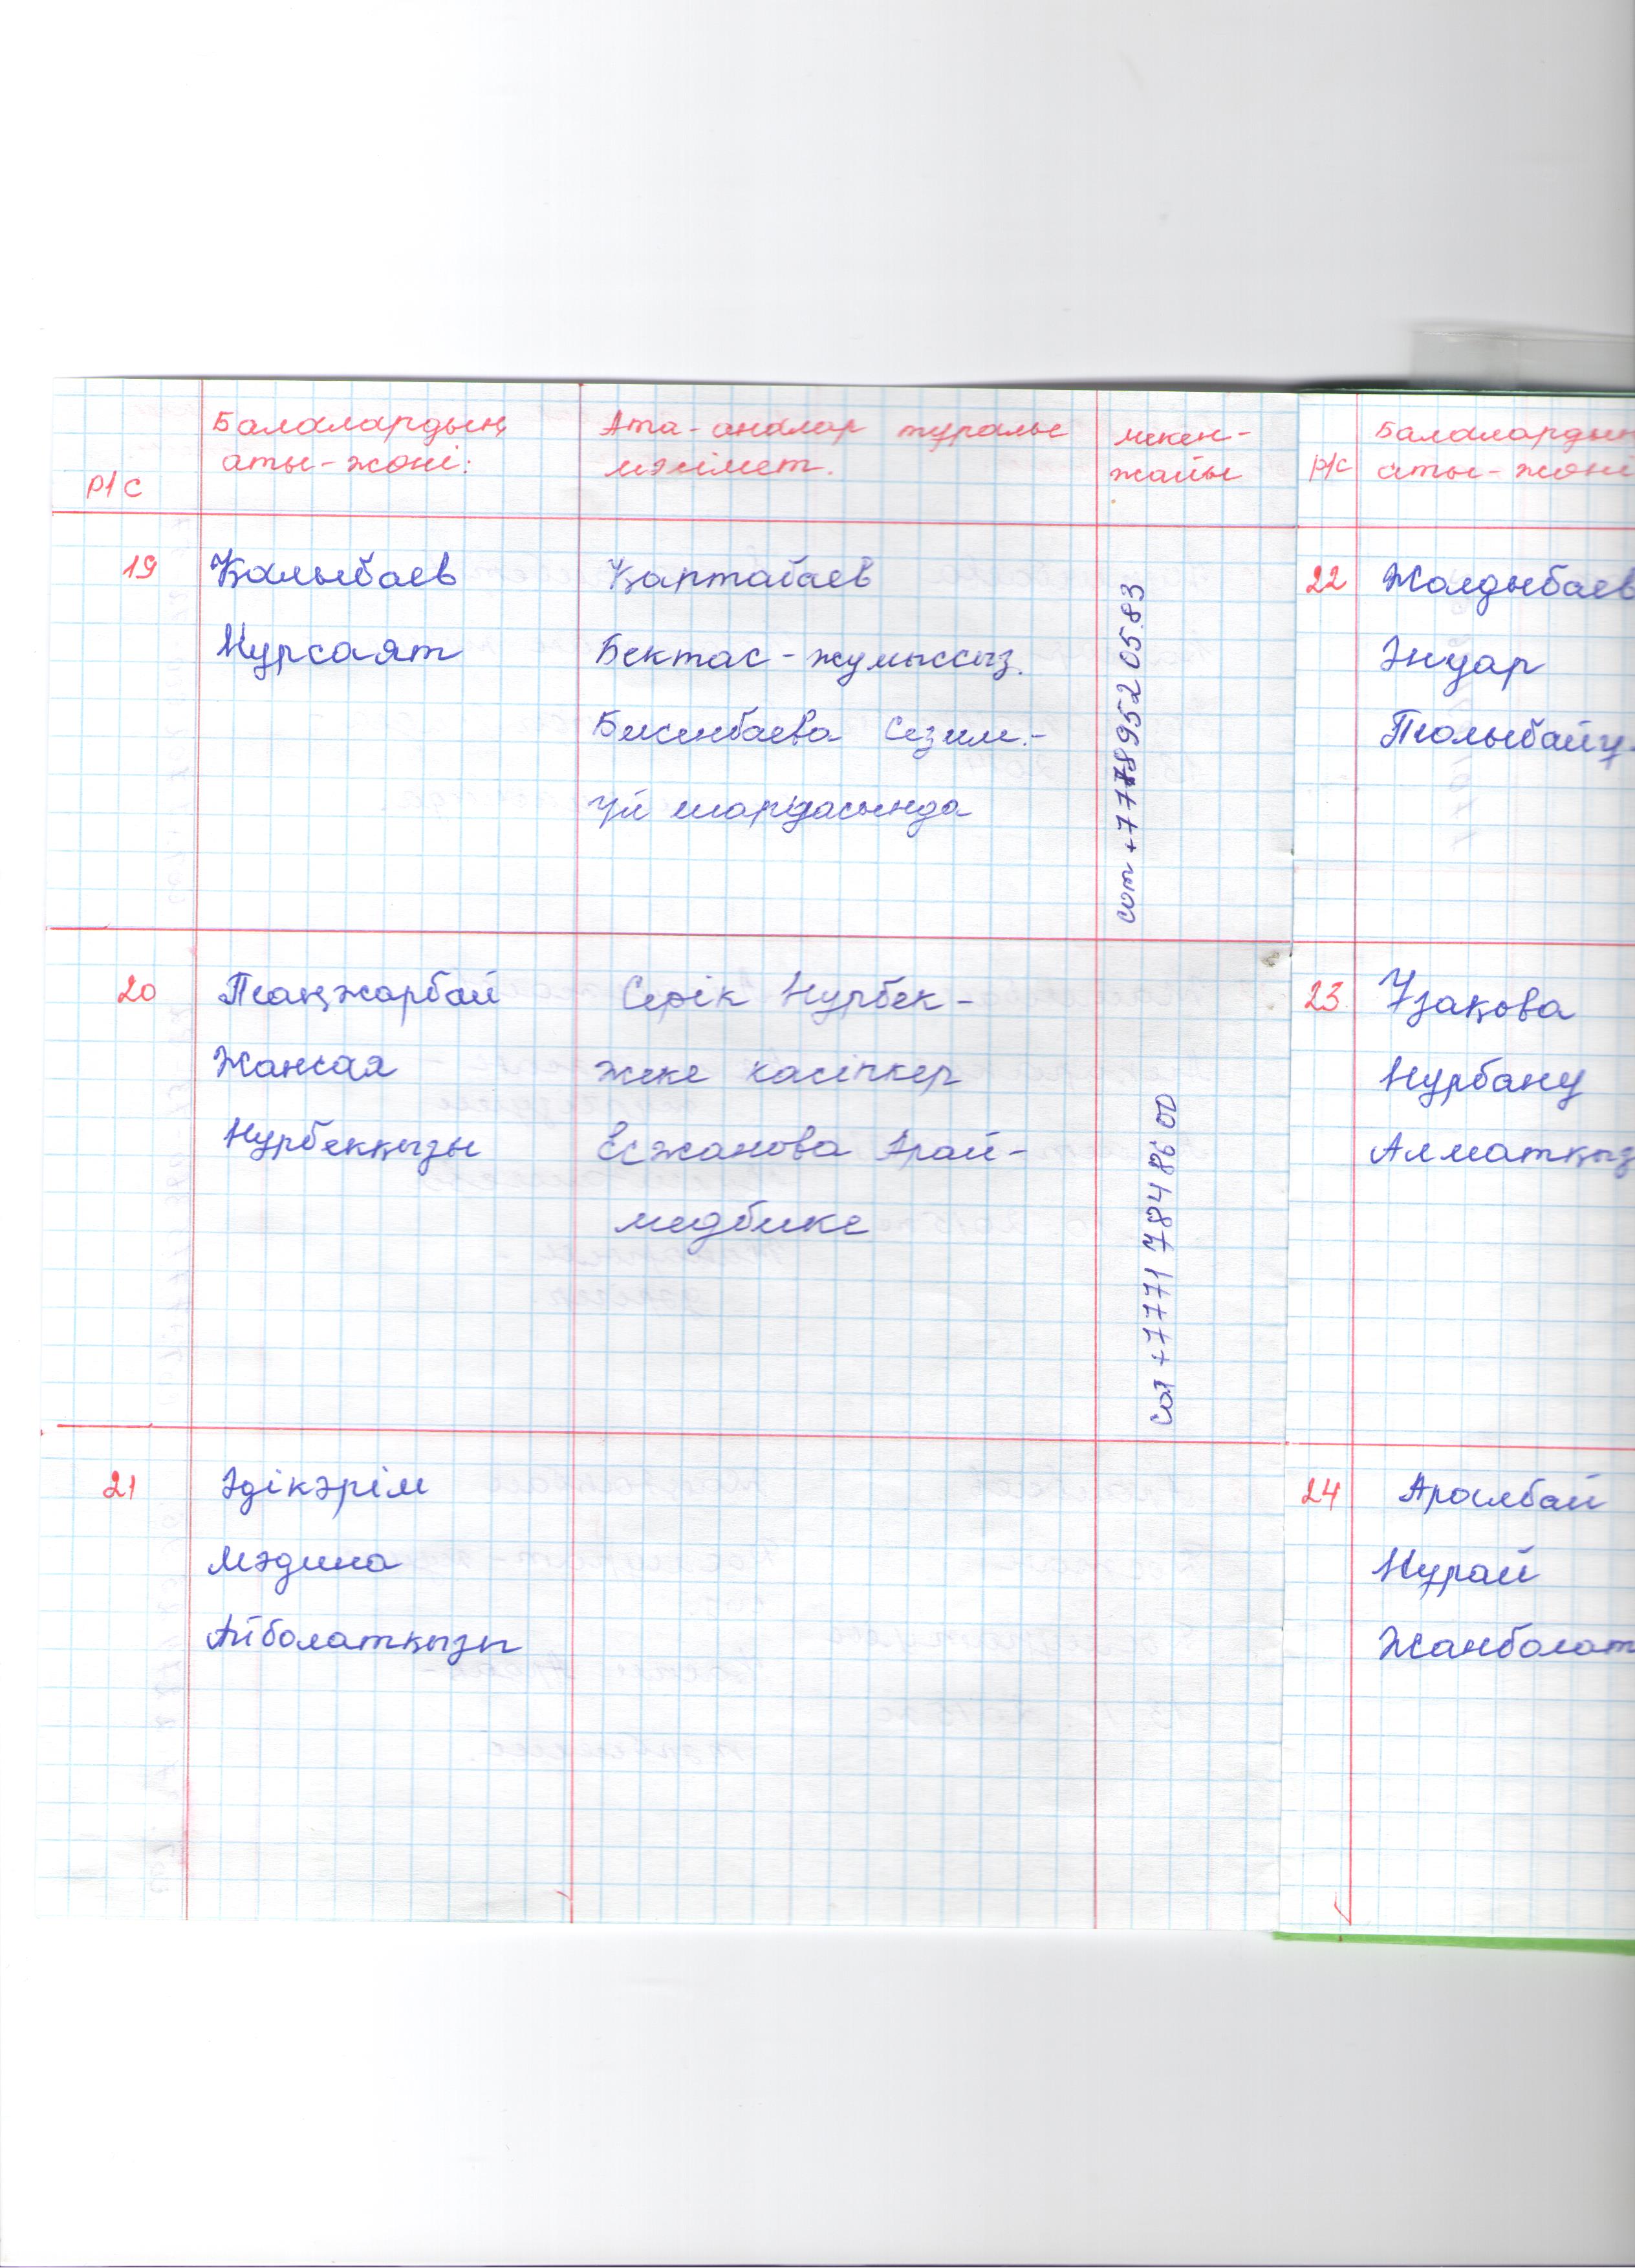 Балалардың
аты-жөні:
Р/С
Ата-аналар туралы
мәлімет.
мекен-
жайы
19
Қалыбаев
Нурсаят
Қартабаев
Бектас - жумыссыз.
Бисенбаева Сезим.-
Үй шаруасында
сот +7 778 952 05 83
20
Таңжарбай
Жансая
Нурбекқызы
Серік Нурбек -
жеке касіпкер
Есжанова Арай-
медбике
сот +7 771 784 86 00
21
Әдікәрім
Мәдина
Айболатқызы
Балалардың
Р/С аты-жөні
22 Жолдыбаев
Әнуар
23 Ұзақова
Нурбану
Алматқыз
24
Нұрай
Жанболат